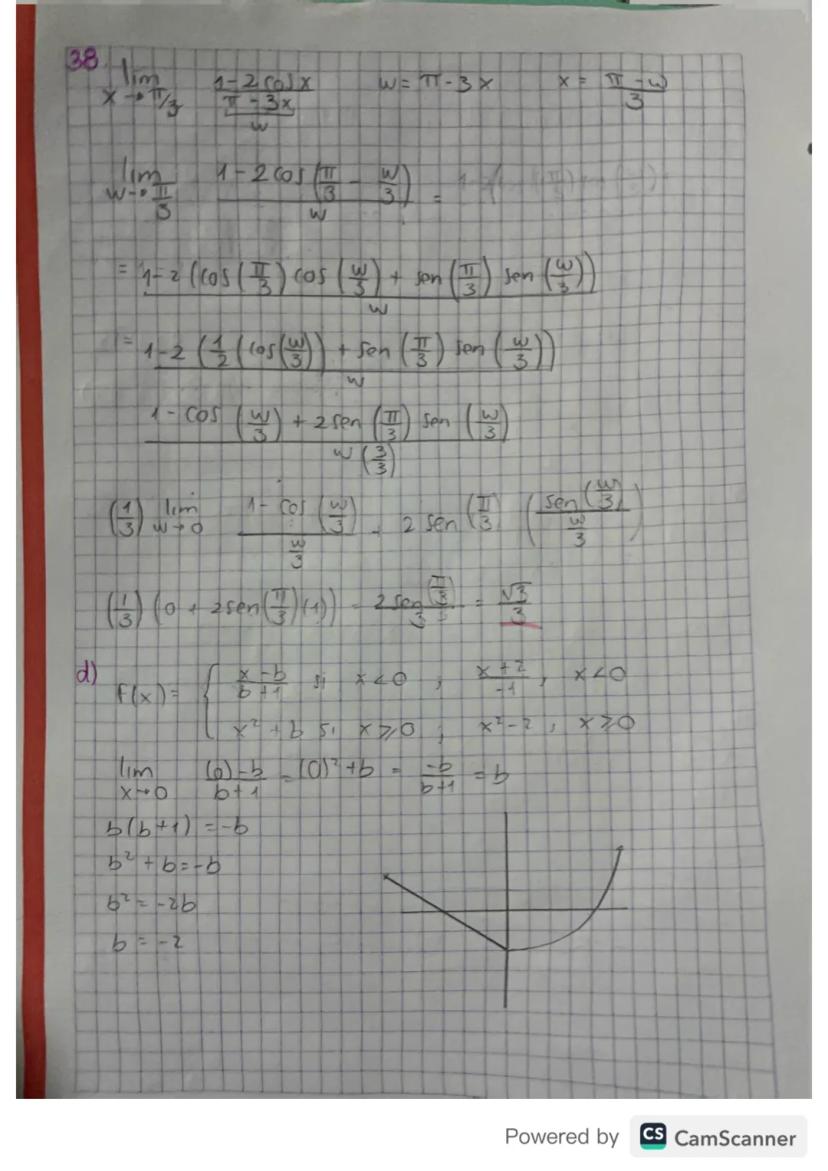 38
lim x→π/3 (1-2cosx)/(π-3x) w w=π-3x x=(π-w)/3
lim w→π/3 (1-2cos(π/3 - w/3))/w =
= (1-2(cos(π/3)cos(w/3)+sen(π/3)sen(w/3)))/w
= (1-2(1/2(cos(w/3))+sen(π/3)sen(w/3)))/w
(1-cos(w/3)+2sen(π/3)sen(w/3))/(w(3/3))
(1/3) lim w→0 (1-cos(w/3))/(w/3) 2sen(π/3) (sen(w/3)/(w/3))
(1/3)(0+2sen(π/3)(1)) = 2sen(π/3)/3 = √3/3
d) f(x)= { (x-b)/(b+1) si x<0 ; (x+2)/-1 , x<0
x²+b si x≥0 ; x²-2 , x≥0
lim x→0 ((0)-b)/(b+1) = (0)²+b = -b/(b+1) = b
b(b+1)=-b
b²+b=-b
b²=-2b
b=-2
Powered by CS CamScanner